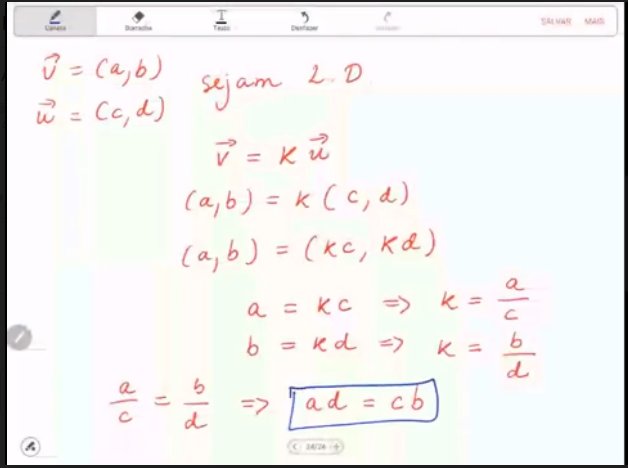 Caneta Borracha Texto Desfazer SALVAR MAIS
v⃗ = (a,b) sejam L.D
w⃗ = (c,d)
v⃗ = K u⃗
(a,b) = K (c, d)
(a,b) = (Kc, Kd)
a = Kc => K = a/c
b = Kd => K = b/d
a/c = b/d => ad = cb
24/24